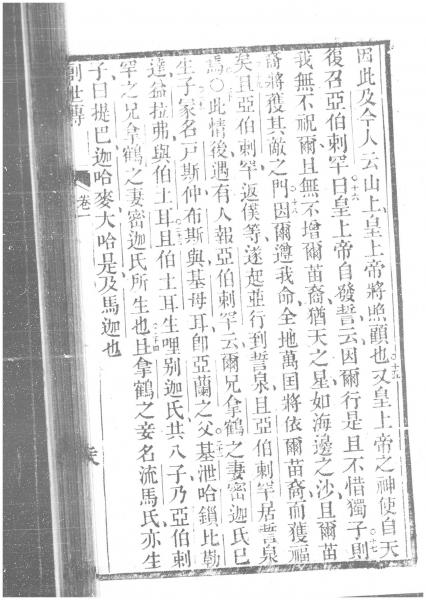 因此及今人云山上皇上帝將照顧也○十五又皇上帝之神使自天
復召亞伯剌罕○十六曰皇上帝自發誓云因爾行是且不惜獨子則○十七
我無不祝爾且無不增爾苗裔猶天之星如海邊之沙且爾苗
裔將獲其敵之門○十八因爾遵我命全地萬国將依爾苗裔而獲福
矣且亞伯剌罕返僕等遂起並行到誓泉且亞伯剌罕居誓泉
焉○此情後遇有人報亞伯剌罕云爾兄拿鶴之妻密迦氏已
生子家名戸斯仲布斯與基母耳卽亞蘭之父基泄哈鎖比勒
達益拉弗與伯土耳且伯土耳生哩別迦氏共八子乃亞伯剌
罕之兄拿鶴之妻密迦氏所生也且拿鶴之妾名流馬氏亦生
子曰提巴迦哈麥大哈是及馬迦也
創世傳
卷一